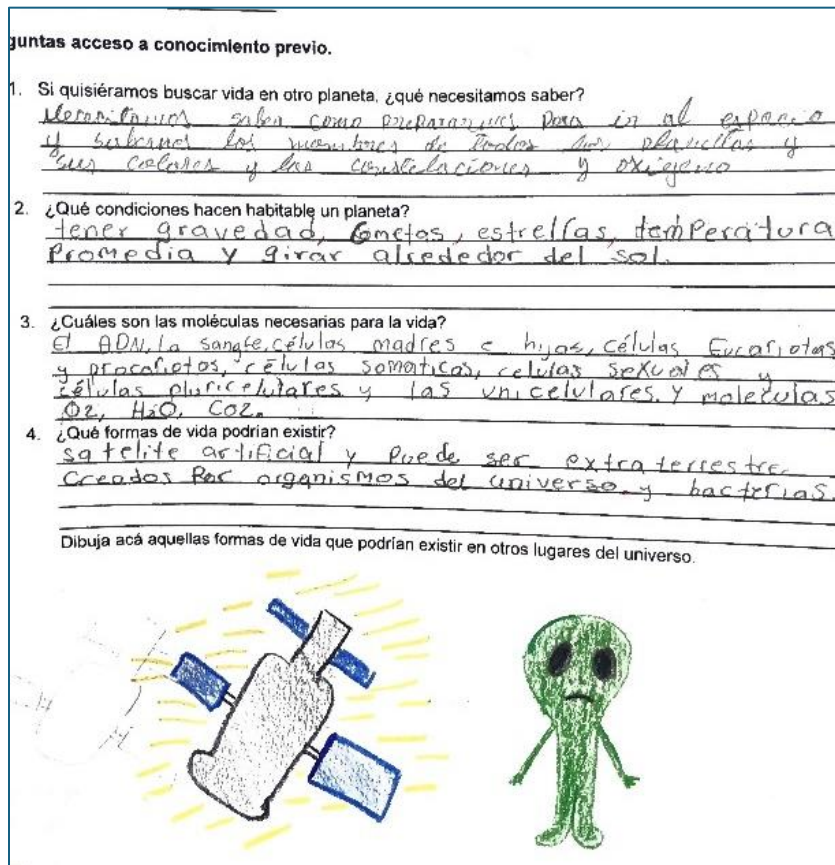 guntas acceso a conocimiento previo.
1. Si quisiéramos buscar vida en otro planeta, ¿qué necesitamos saber?
Necesitamos saber como prepararnos para ir al espacio
y sabernos los nombres de todos los planetas y
sus colores y las constelaciones y oxigeno
2. ¿Qué condiciones hacen habitable un planeta?
tener gravedad, Cometas, estrellas, temperatura
Promedia y girar alrededor del sol.
3. ¿Cuáles son las moléculas necesarias para la vida?
El ADN, la sangre, células madres e hijas, células Eucariotas
y procariotos, células somaticas, celulas sexuales y
células pluricelulares y las unicelulares. y moleculas
O2, H2O, CO2.
4. ¿Qué formas de vida podrían existir?
satelite artificial y Puede ser extraterrestre
Creados Por organismos del universo y bacterias.
Dibuja acá aquellas formas de vida que podrían existir en otros lugares del universo.